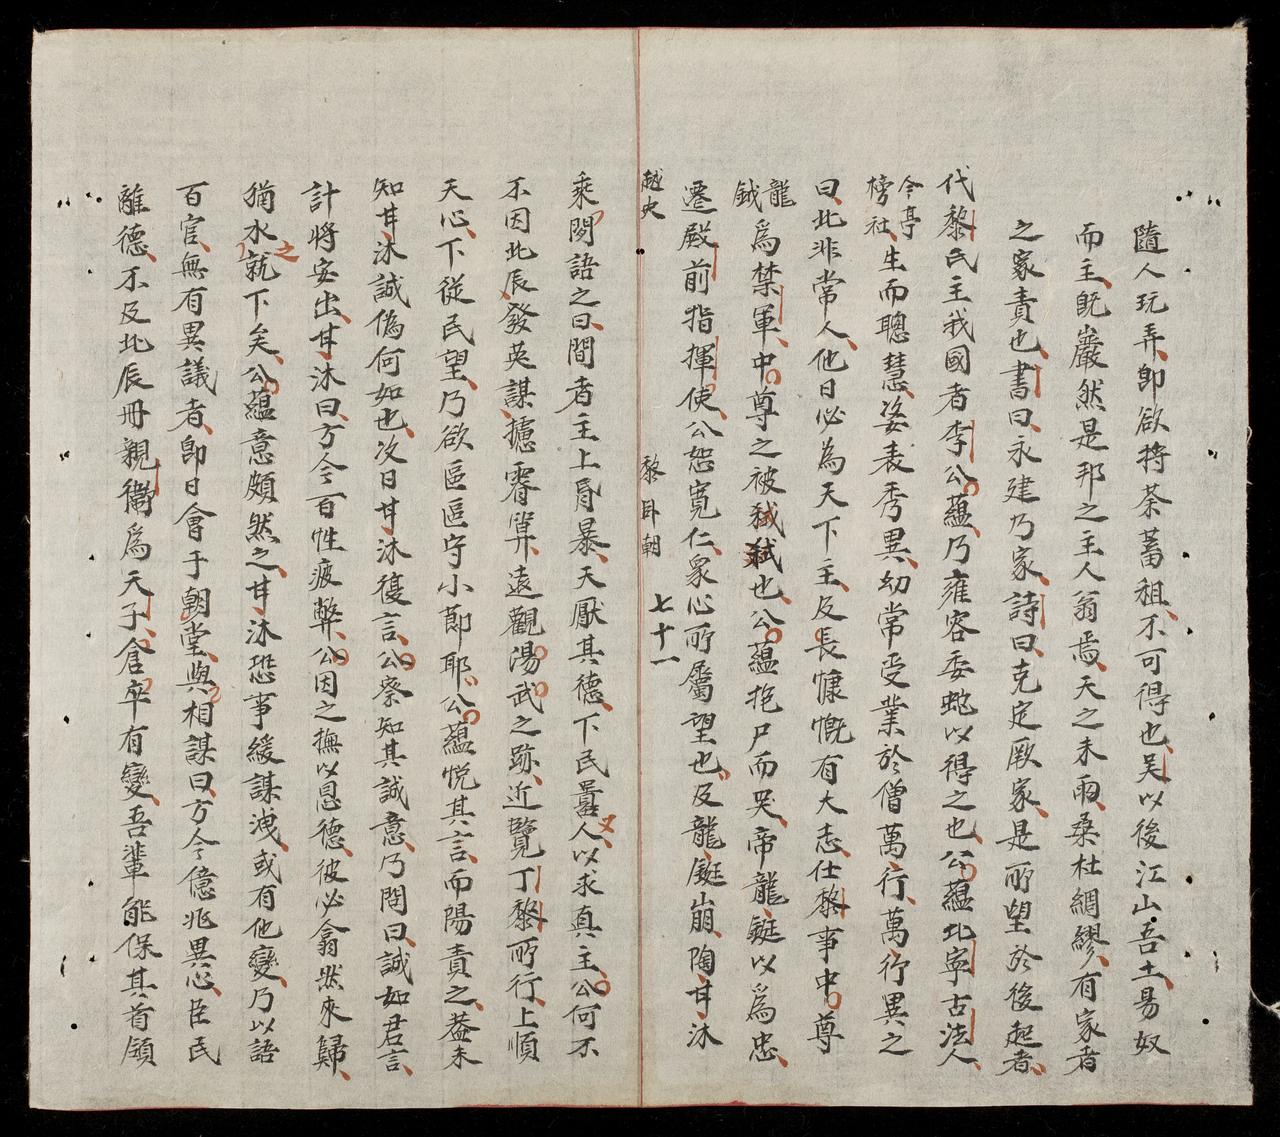 隨人玩弄卽欲將荼蓄租不可得也吴以後江山吾土易奴
而主旣巖然是邦之主人翁焉天之未雨桑杜綢繆有家者
之家責也書曰永建乃家詩曰克定厥家是所望於後起者
代黎氏主我國者李公蘊乃雍容委蛇以得之也公蘊北寧古法人
今亭榜社生而聰慧姿表秀異幼常受業於僧萬行萬行異之
曰此非常人他日必為天下主及長慷慨有大志仕黎事中尊
龍鉞爲禁軍中尊之被弒弒也公蘊抱尸而哭帝龍鋌以爲忠
遷殿前指揮使公恕寬仁衆心所屬望也及龍鋌崩陶甘沐
越史 黎臥朝 七十一
乘閒語之曰間者主上昬暴天厭其德下民嚚人又以求真主公何不
不因此辰發英謀攄睿筭遠觀湯武之跡近覽丁黎所行上順
天心下從民望乃欲區區守小節耶公蘊悦其言而陽責之葢未
知甘沐誠偽何如也次日甘沐復言公察知其誠意乃問曰誠如君言
計將安出甘沐曰方今百性疲弊公因之撫以恩德彼必翕然來歸
猶水之就下矣公蘊意頗然之甘沐恐事緩謀洩或有他變乃以語
百官無有異議者卽日會于朝堂與相謀曰方今億兆異心臣民
離德不及此辰冊親衛爲天子倉卒有變吾輩能保其首領